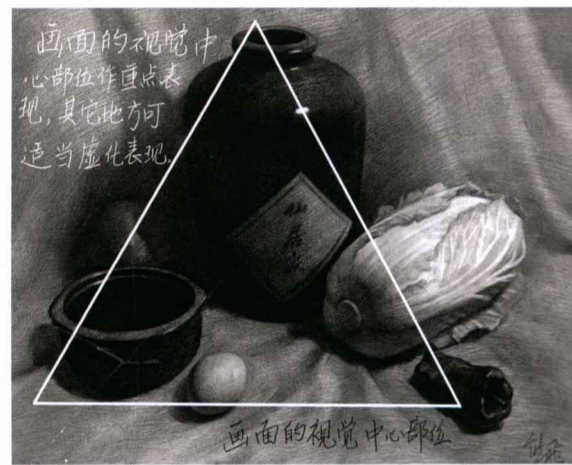 画面的视觉中
心部位作重点表
现，其它地方可
适当虚化表现.
仙居
画面的视觉中心部位